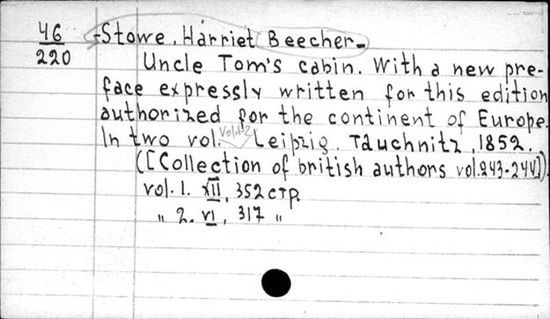 46
220
-Stowe, Harriet Beecher-
Uncle Tom's cabin. With a new pre-
face expressly written for this edition
authorized for the continent of Europe.
In two vol. Vol.1-2 Leipzig. Tauchnitz, 1852.
([Collection of british authors vol. 243-244])
vol. 1. XII, 352 стр.
„ 2. VI, 317 „